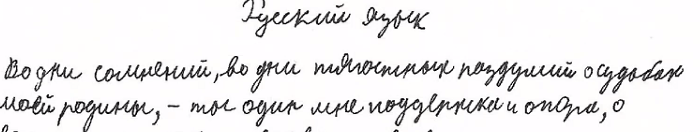 Русский язык
Во дни сомнений, во дни тягостных раздумий о судьбах
моей родины, – ты один мне поддержка и опора, о